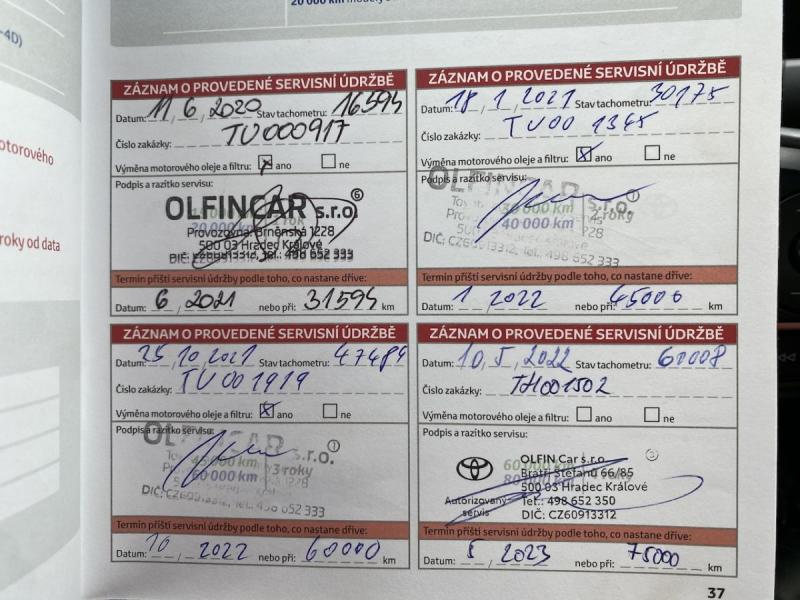 -4D)
20 000 km
otorového
roky od data
ZÁZNAM O PROVEDENÉ SERVISNÍ ÚDRŽBĚ
Datum: 11 6 2020 Stav tachometru: 16594
Číslo zakázky: TU000917
Výměna motorového oleje a filtru: ano ne
Podpis a razítko servisu:
6
OLFINCAR s.r.o.
20 000 km rok
Provozovna: Brněnská 1228
500 03 Hradec Králové
DIČ: CZ60913312, Tel.: 498 652 333
Termín příští servisní údržby podle toho, co nastane dříve:
Datum: 6 2021 nebo při: 31594 km
ZÁZNAM O PROVEDENÉ SERVISNÍ ÚDRŽBĚ
Datum: 18 1 2021 Stav tachometru: 30175
Číslo zakázky: TU00 1345
Výměna motorového oleje a filtru: ano ne
Podpis a razítko servisu:
1
OLFINCAR s.r.o.
30 000 km 2 roky
40 000 km
DIČ: CZ60913312, Tel.: 498 652 333
Termín příští servisní údržby podle toho, co nastane dříve:
Datum: 1 2022 nebo při: 45000 km
ZÁZNAM O PROVEDENÉ SERVISNÍ ÚDRŽBĚ
Datum: 25 10 2021 Stav tachometru: 47484
Číslo zakázky: TU001919
Výměna motorového oleje a filtru: ano ne
Podpis a razítko servisu:
1
OLFINCAR s.r.o.
45 000 km 3 roky
60 000 km 1228
DIČ: CZ60913312, Tel.: 498 652 333
Termín příští servisní údržby podle toho, co nastane dříve:
Datum: 10 2022 nebo při: 60000 km
ZÁZNAM O PROVEDENÉ SERVISNÍ ÚDRŽBĚ
Datum: 10 5 2022 Stav tachometru: 60008
Číslo zakázky: TH001502
Výměna motorového oleje a filtru: ano ne
Podpis a razítko servisu:
OLFIN Car s.r.o.
60 000 km
Bratří Štefanů 66/85
500 03 Hradec Králové
Autorizovaný Tel.: 498 652 350
servis DIČ: CZ60913312
Termín příští servisní údržby podle toho, co nastane dříve:
Datum: 5 2023 nebo při: 75000 km
37